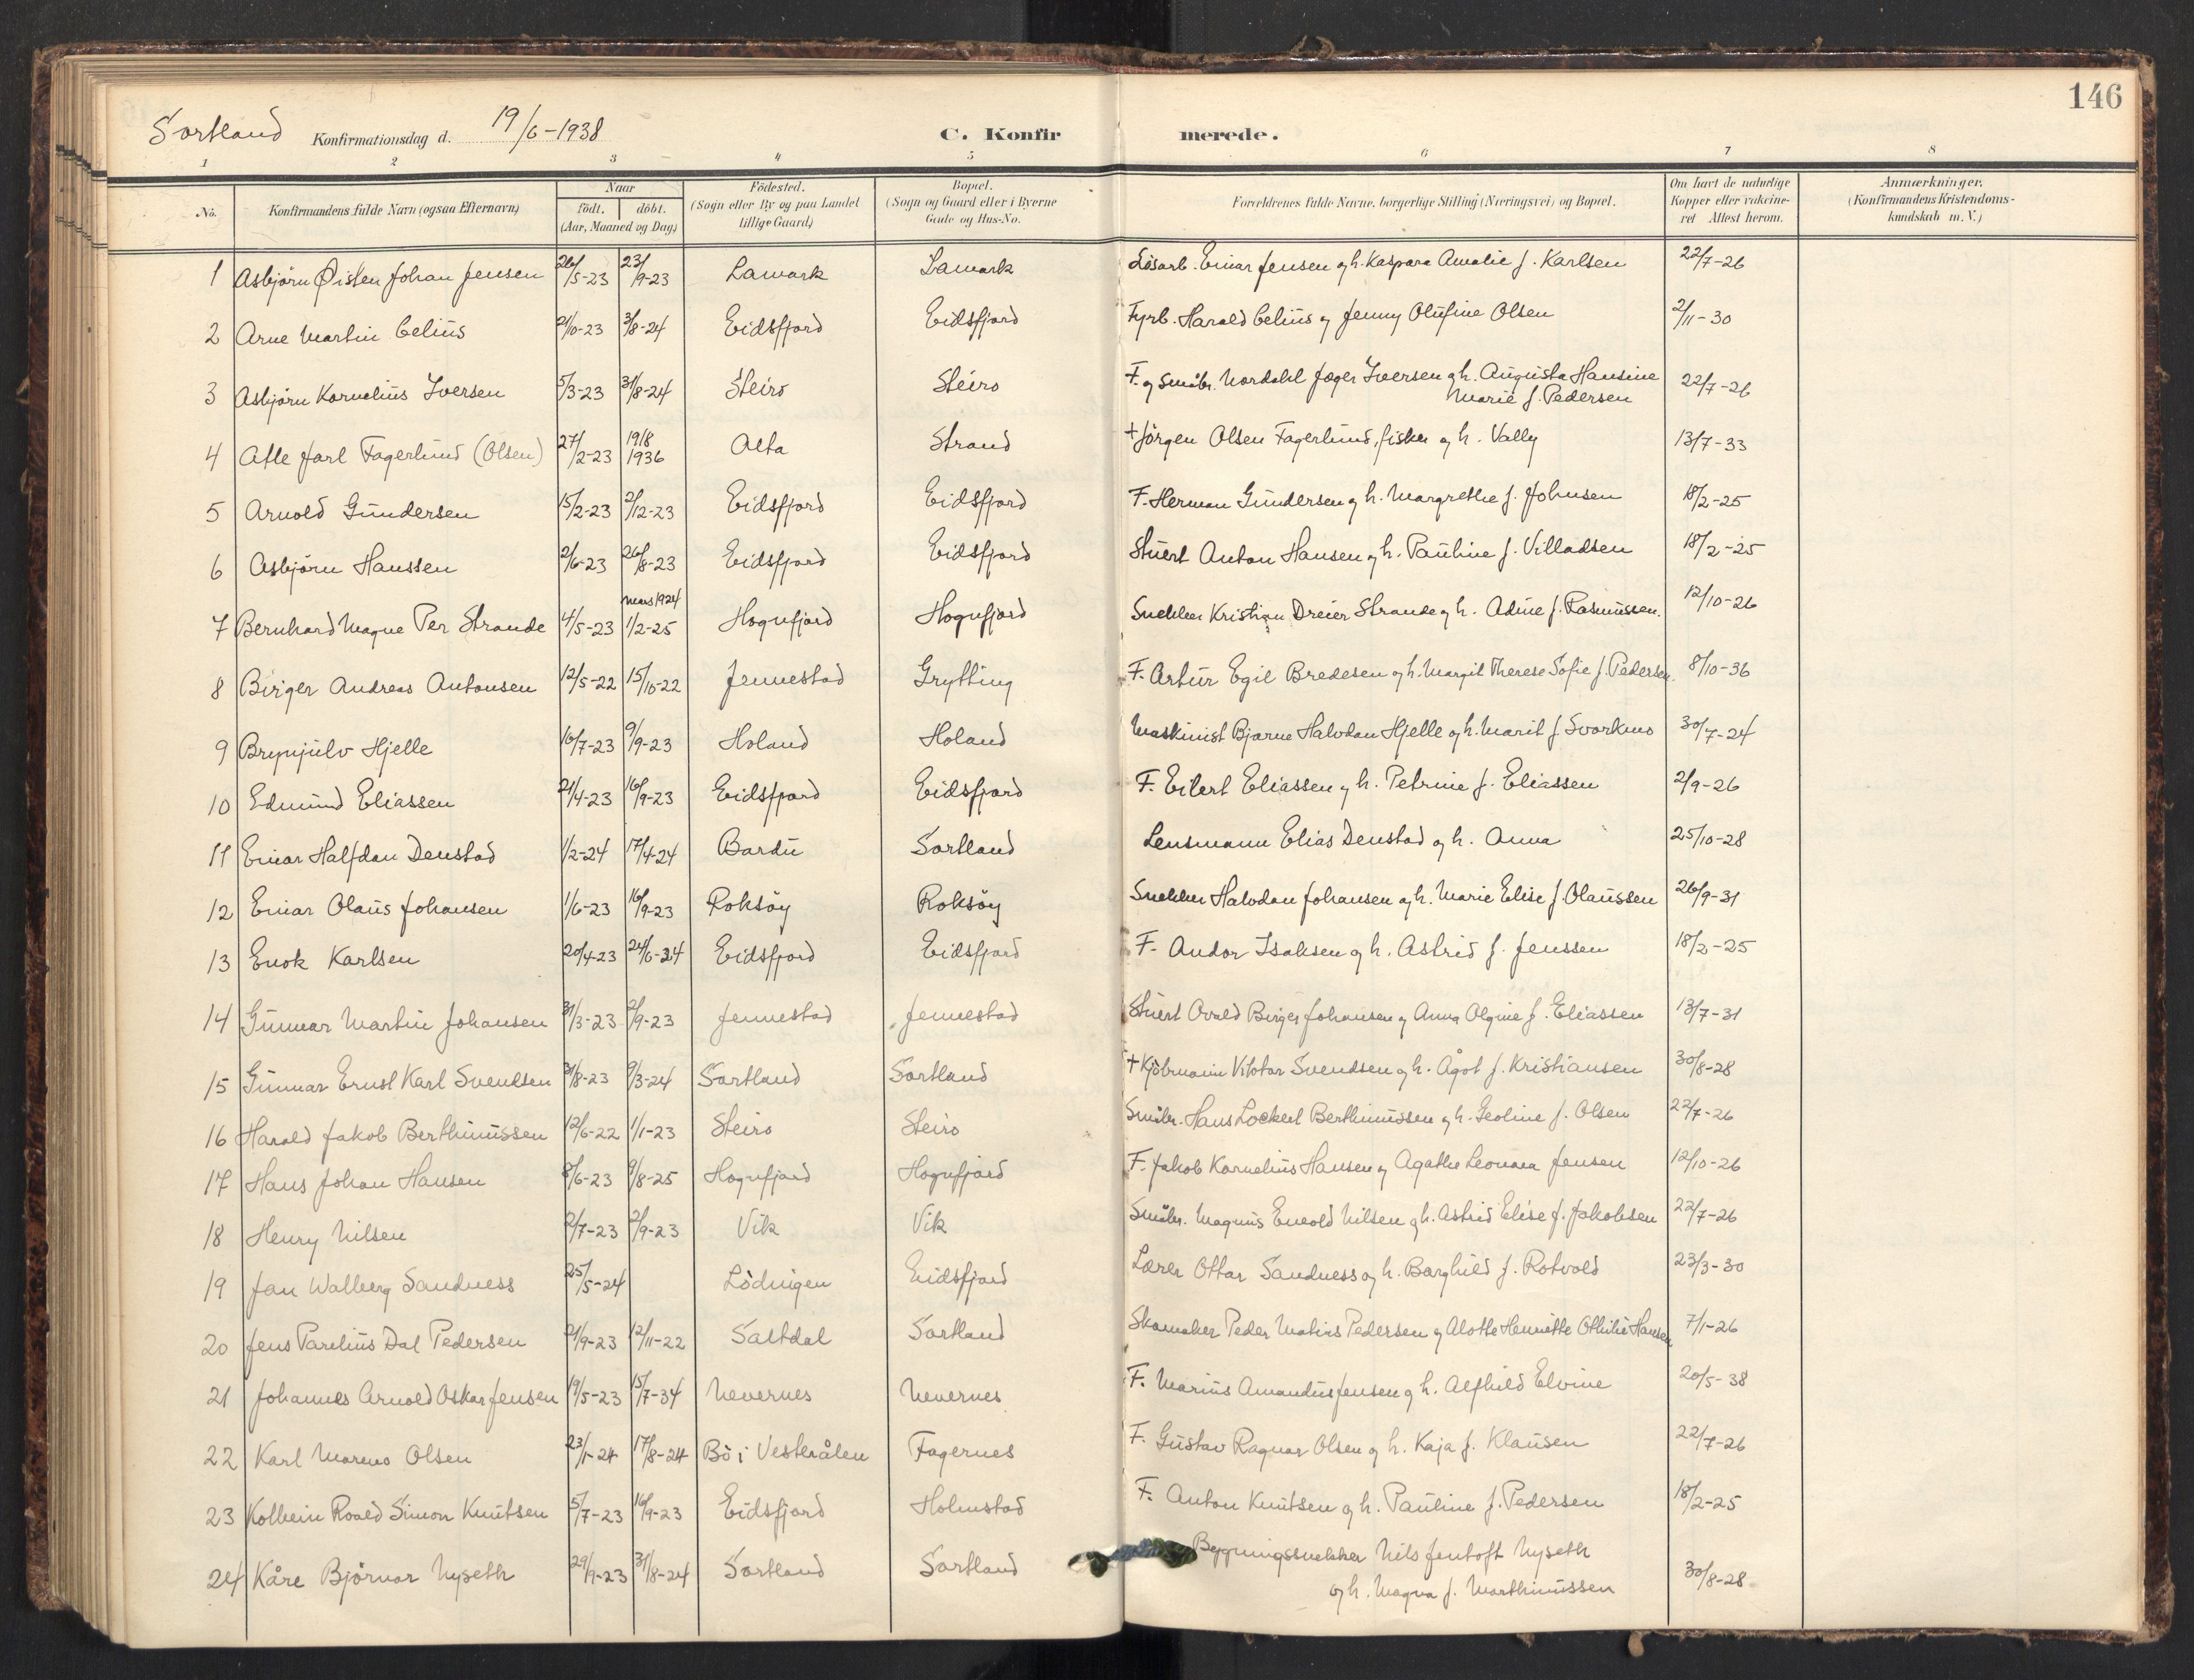 146
Sortland Konfirmationsdag d. 19/6-1938 C. Konfirmerede.
1 2 3 4 5 6 7 8
No. Konfirmandens fulde Navn (ogsaa Efternavn) Naar födt. döbt. (Aar, Maaned og Dag) Födested. (Sogn eller By og paa Landet tillige Gaard) Bopæl. (Sogn og Gaard eller i Byerne Gade og Hus-No. Forældrenes fulde Navne, borgerlige Stilling (Næringsvei) og Bopæl. Om havt de naturlige Kopper eller vakcineret Attest herom. Anmærkninger. (Konfirmandens Kristendomskundskab m. V.)
1 Asbjörn Öisten Johan Jensen 26/5-23 23/9-23 Lamark Lamark Lösarb. Einar Jensen og h. Kaspara Amalie f. Karlsen 22/7-26
2 Arne Martin Celius 21/10-23 3/8-24 Eidsfjord Eidsfjord Fyrb. Harald Celius og Jenny Olufine Olsen 2/11-30
3 Asbjörn Kornelius Iversen 5/3-23 31/8-24 Steiro Steiro F. og Småbr. Nordahl Jæger Iversen og h. Augusta Hansine
Marie f. Pedersen 22/7-26
4 Atle Jarl Fagerlund (Olsen) 27/2-23 19/8 1936 Alta Strand + Jörgen Olsen Fagerlund, fisker og h. Vally 13/7-33
5 Arnold Gundersen 15/2-23 2/12-23 Eidsfjord Eidsfjord F. Herman Gundersen og h. Margrethe f. Johnsen 18/2-25
6 Asbjörn Hanssen 2/6-23 26/8-23 Eidsfjord Eidsfjord Stuert Anton Hansen og h. Pauline f. Villadsen 18/2-25
mars 1924
7 Bernhard Magne Per Strande 4/5-23 1/2-25 Hognfjord Hognfjord Snekker Kristian Dreier Strande og h. Adine f. Rasmussen. 12/10-26
8 Birger Andreas Antonsen 12/5-22 15/10-22 Jennestad Grytting F. Artur Egil Bredesen og h. Margit Therese Sofie f. Pedersen. 8/10-36
9 Brynjulv Hjelle 16/7-23 9/9-23 Holand Holand Maskinist Bjarne Halvdan Hjelle og h. Marit f. Svorkmo 30/7-24
10 Edmund Eliassen 21/4-23 16/9-23 Eidsfjord Eidsfjord F. Eilert Eliassen og h. Petrine f. Eliassen 2/9-26
11 Einar Halfdan Denstad 1/2-24 17/4-24 Bardu Sortland Lensmann Elias Denstad og h. Anna 25/10-28
12 Einar Olaus Johansen 1/6-23 16/9-23 Roksöy Roksöy Snekker Halvdan Johansen og h. Marie Elise f. Olaussen 26/9-31
13 Enok Karlsen 20/4-23 24/6-24 Eidsfjord Eidsfjord F. Andor Isaksen og h. Astrid f. Jenssen 18/2-25
14 Gunnar Martin Johansen 31/3-23 2/9-23 Jennestad Jennestad Stuert Ovald Birger Johansen og Anna Olgine f. Eliassen 13/7-31
15 Gunnar Ernst Karl Svendsen 31/8-23 9/3-24 Sortland Sortland + Kjöbmann Viktor Svendsen og h. Ågot f. Kristiansen 30/8-28
16 Harald Jakob Berthinussen 12/6-22 1/1-23 Steiro Steiro Småbr. Hans Lockert Berthinussen og h. Geoline f. Olsen 22/7-26
17 Hans Johan Hansen 8/6-23 9/8-25 Hognfjord Hognfjord F. Jakob Kornelius Hansen og Agathe Leonora Jensen 12/10-26
18 Henry Nilsen 2/7-23 2/9-23 Vik Vik Småbr. Magnus Enevold Nilsen og h. Astrid Elise f. Jakobsen 22/7-26
19 Jan Walberg Sandness 25/5-24 Lödingen Eidsfjord Lærer Ottar Sandness og h. Borghild f. Rotvold 23/3-30
20 Jens Parelius Dal Pedersen 21/9-23 12/11-22 Saltdal Sortland Skomaker Peder Matias Pedersen og Alotte Henriette Othilie Hansen 7/1-26
21 Johannes Arnold Oskar Jensen 19/5-23 15/7-34 Nevernes Nevernes F. Marius Amandus Jensen og h. Alfhild Elvine 20/5-38
22 Karl Marcus Olsen 23/1-24 17/8-24 Bö i Vesterålen Fagernes F. Gustav Ragnar Olsen og h. Kaja f. Klausen 22/7-26
23 Kolbein Roald Simon Knutsen 5/7-23 16/9-23 Eidsfjord Holmstad F. Anton Knutsen og h. Pauline f. Pedersen 18/2-25
24 Kåre Björnar Nyseth 29/9-23 31/8-24 Sortland Sortland Bygningssnekker Nils Jentoft Nyseth
og h. Magna f. Marthinussen 30/8-28